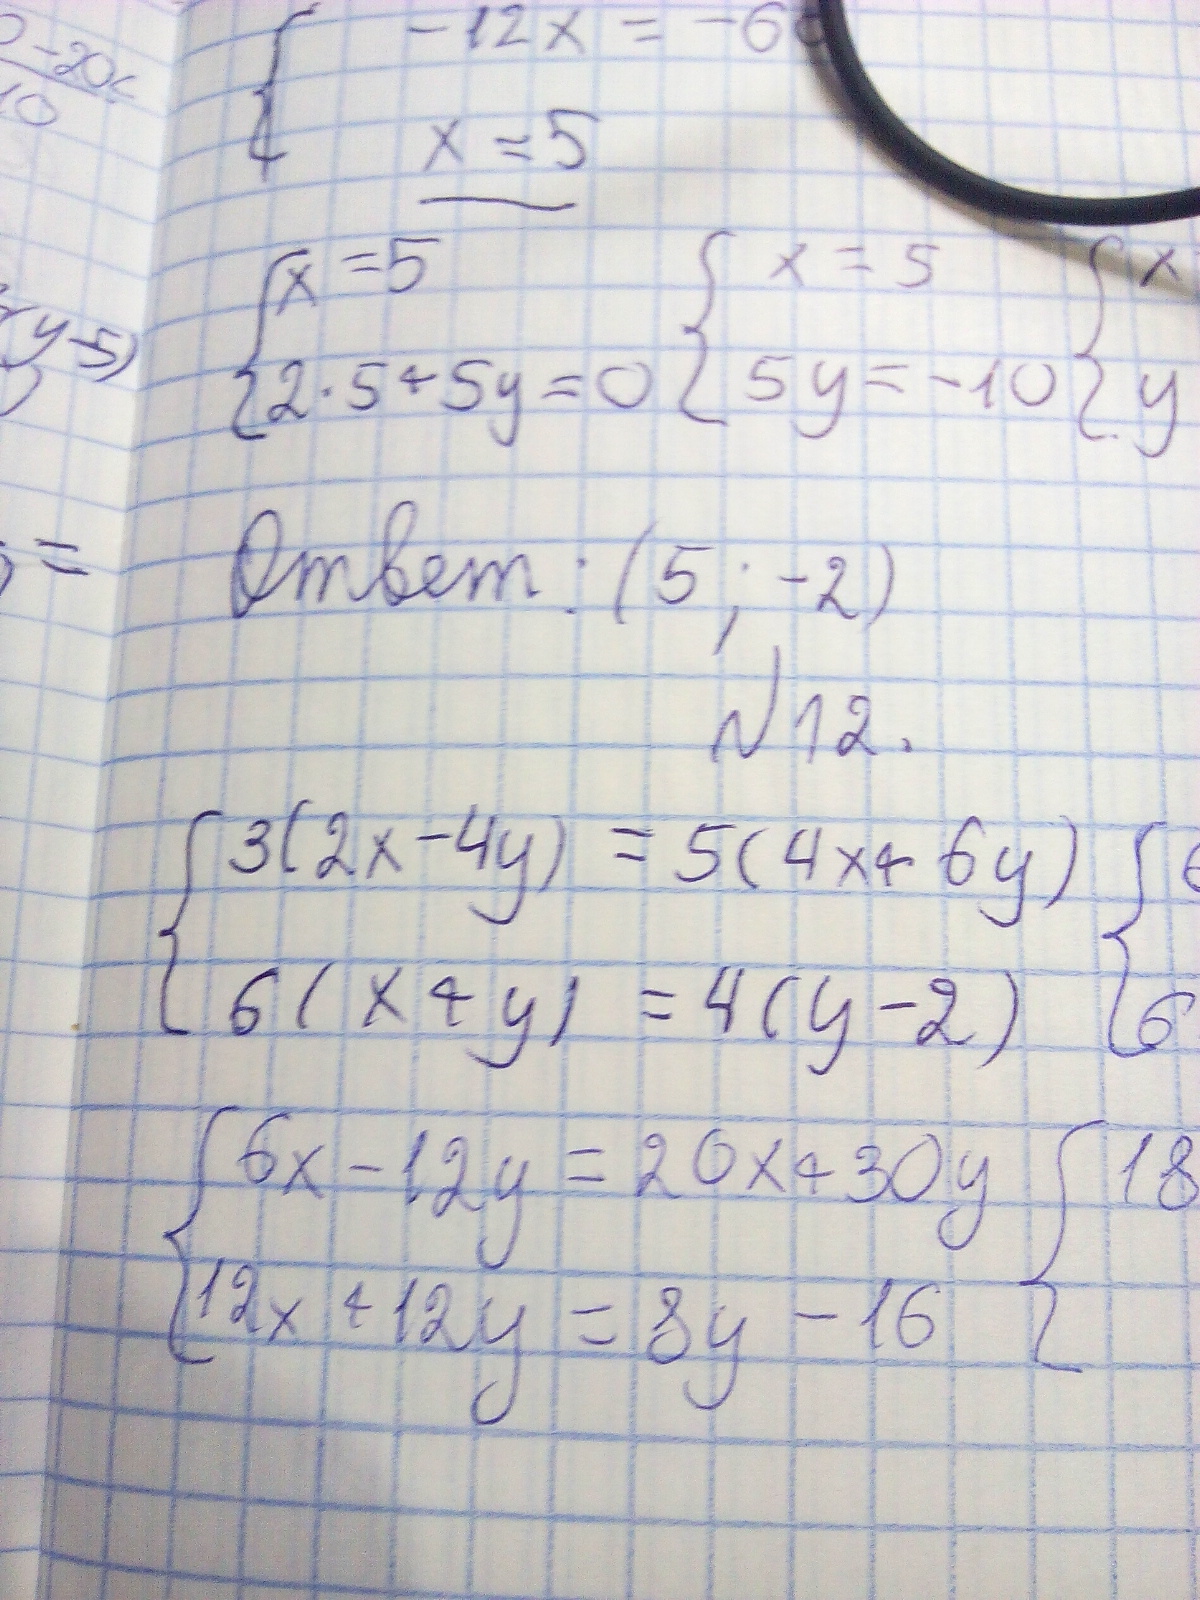 -20
10
{ -12x = -6
x = 5
y-5)
{ x = 5 { x = 5 { x
{ 2·5+5y=0 { 5y = -10 { y
=
Ответ: (5; -2)
№12.
{ 3(2x-4y) = 5(4x+6y) {
{ 6(x+y) = 4(y-2) { 6
{ 6x-12y = 20x+30y { 18
{ 12x+12y = 8y-16 {